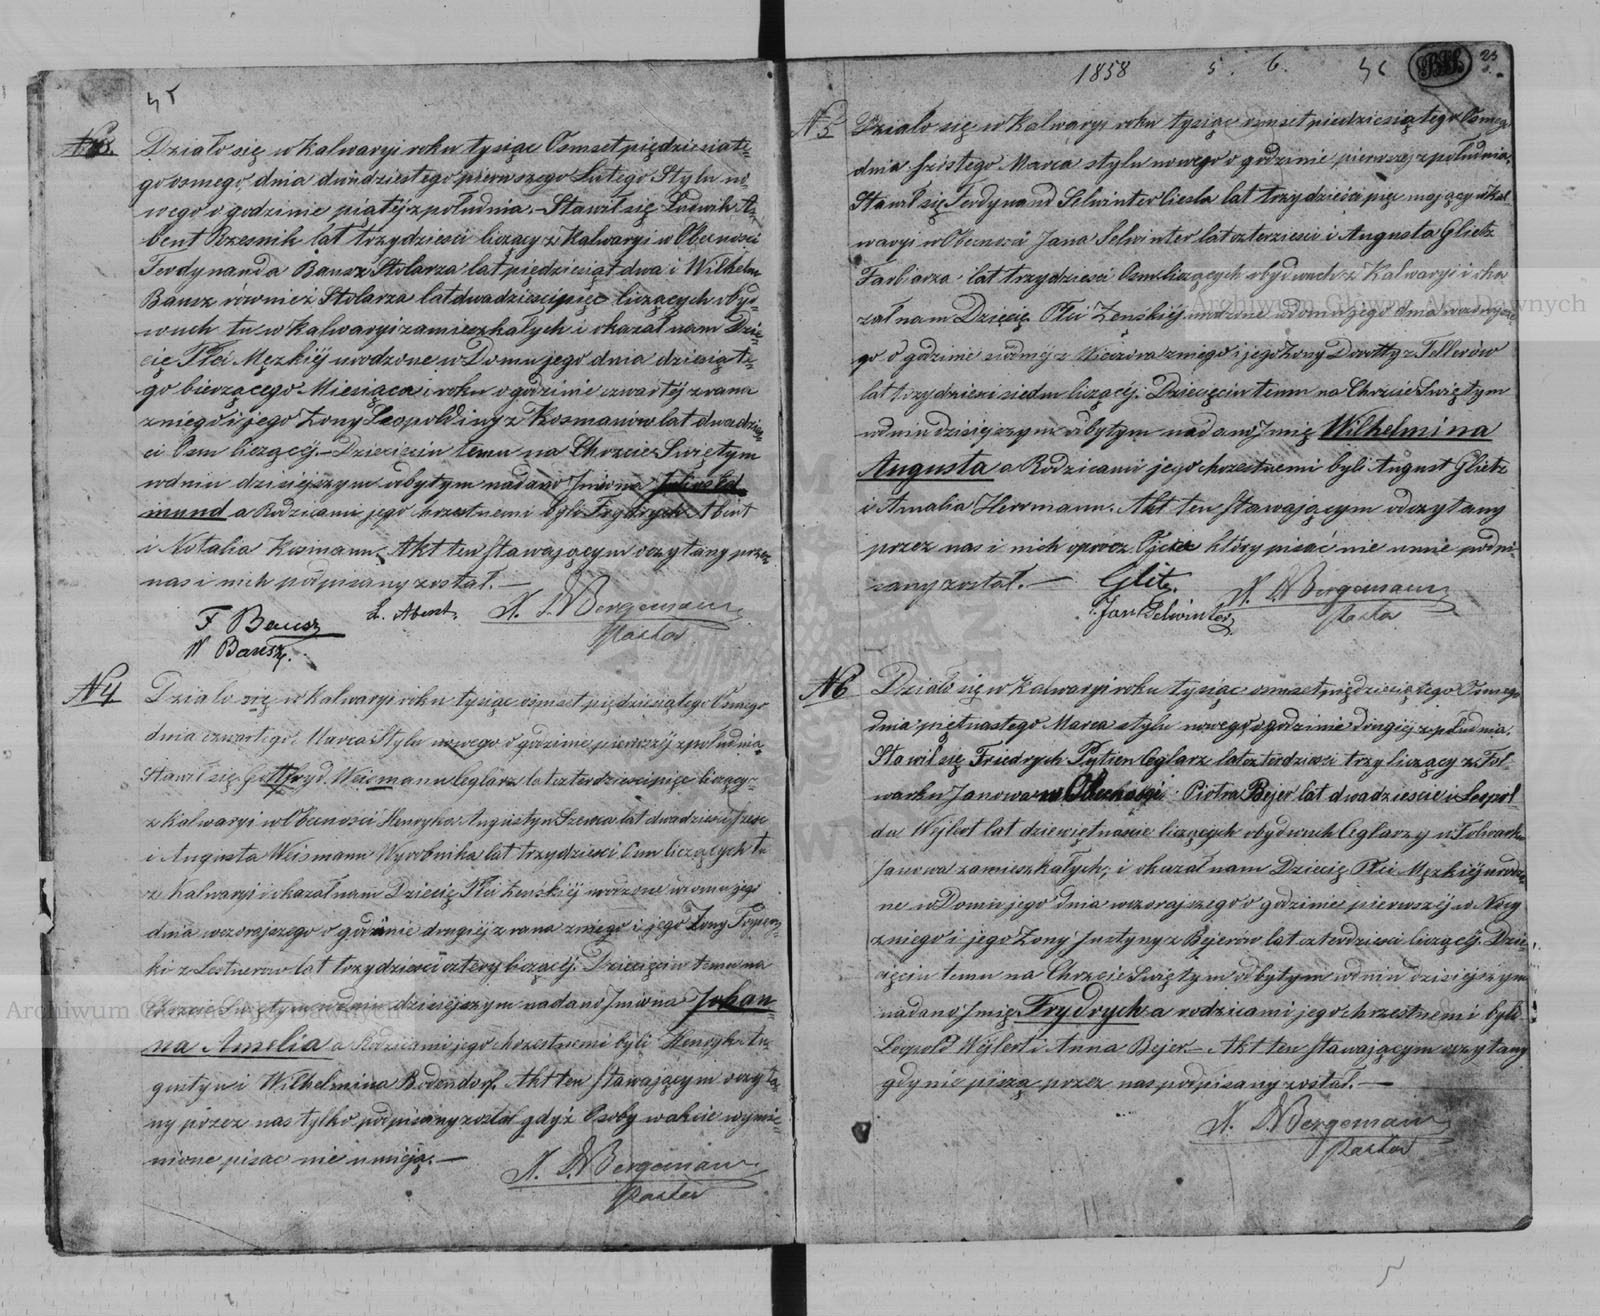 45
N 3.
Działo się w Kalwaryi roku tysiąc Osmset pięćdziesiąte-
go osmego, dnia dwudziestego pierwszego Lutego Stylu no-
wego o godzinie piątéj z południa. – Stawił się Ludwik A-
bent lat trzydzieści liczący z Kalwaryi w Obecności
Ferdynanda Bausz Stolarza lat pięćdziesiąt dwa i Wilhelm
Bausz również Stolarza lat dwadzieścia pięć liczących obyd-
wuch tu w Kalwaryi zamieszkałych i okazał nam Dzie-
cię Płci Męzkiéj urodzone w Domu jego dnia dziesiąte-
go bierzącego Miesiąca i roku o godzinie czwartéj z rana
z niego i jego Żony Leopoldiny z Kosmanów lat dwadzieś-
ci Osm liczącéj. – Dziecięciu temu na Chrzcie Świętym
w dniu dzisiejszym odbytym nadano Imiona Julius Ed-
mund a Rodzicami jego chrzestnemi byli Frydrych Abent
i Natalia Kosmann. Akt ten stawającym oczytany przez
nas i nich podpisany został. —
F Bausz
L. Abent.
W Bausz.
Bergemann
Pastor
N 4
Działo się w Kalwaryi roku tysiąc osmset pięćdziesiątego Osmego
dnia czwartego Marca Stylu nowego o godzinie pierwszéj z południa.
Stawił się Gottfryd Weismann Ceglarz lat czterdzieści pięć liczący
z Kalwaryi w Obecności Henryka Augustyn Szewca lat dwadzieścia sześć
i Augusta Weismann Wyrobnika lat trzydzieści Osm liczących tu
z Kalwaryi i okazał nam Dziecię Płci Żeńskiéj urodzone w domu jego
dnia wczorajszego o godzinie drugiéj z rana z niego i jego Żony
ki z Lestnerów lat trzydzieści cztery liczącéj. Dziecięciu temu na
Chrzcie Świętym w dniu dzisiejszym nadano Imiona Johan-
na Amelia a Rodzicami jego chrzestnemi byli Henryk Au-
gustyn i Wilhelmina Bodendorf. Akt ten stawającym oczyta-
ny przez nas tylko podpisany został gdyż Osoby w akcie wymie-
nione pisac nie umieją. —
Bergemann
Pastor
1858 5. 6. 46
23
N 5
Działo się w Kalwaryi roku tysiąc osmset piędziesiątego Osmego
dnia szóstego Marca stylu nowego o godzinie pierwszéj z południa.
Stawił się Ferdynand Selwinter Ciesla lat trzydzieści pięć mający w Kal-
waryi w Obecności Jana Selwinter lat czterdzieści i Augusta Glietz
Farbiarza lat trzydzieści Osm liczących obydwuch z Kalwaryi i oka-
zał nam Dziecię Płci Żenskiéj urodzone w domu jego dnia wczorajsze-
go o godzinie siódméj z Wieczora z niego i jego Żony Dorotty z Tellerów
lat trzydzieści siedm liczącéj. Dziecięciu temu na Chrzcie Świętym
w dniu dzisiejszym odbytym nadano Imię Wilhelmina
Augusta a Rodzicami jego chrzestnemi byli August Glietz
i Amalia Herrmann. Akt ten stawającym odczytany
przez nas i nich oprócz Ojca który pisać nie umie podpi-
sany został. —
Glitz
Jan Selwinter
Bergemann
Pastor
N 6
Działo się w Kalwaryi roku tysiąc osmset piędziesiątego Osmego
dnia piętnastego Marca stylu nowego o godzinie drugiéj z południa.
Stawił się Friedrych Ceglarz lat czterdzieści trzy liczący z Fol-
warku Janowa w Obecności Piotra Bejer lat dwadzieścia i Leopol-
da Wejlert lat dziewiętnaście liczących obydwuch Ceglarzy w Folwarku
Janowa zamieszkałych, i okazał nam Dziecię Płci Męzkiéj urodzo-
ne w Domu jego dnia wczorajszego o godzinie pierwszéj w Nocy
z niego i jego Żony Justyny z Bejerów lat czterdzieści liczącéj. Dzie-
cięciu temu na Chrzcie Świętym odbytym w dniu dzisiejszym
nadano Imię Frydrych a rodzicami jego chrzestnemi byli
Leopold Wejlert i Anna Bejer. – Akt ten stawającym oczytany
gdy nie piszą przez nas podpisany został. —
Bergemann
Pastor
Archiwum Główne Akt Dawnych
Archiwum Główne Akt Dawnych